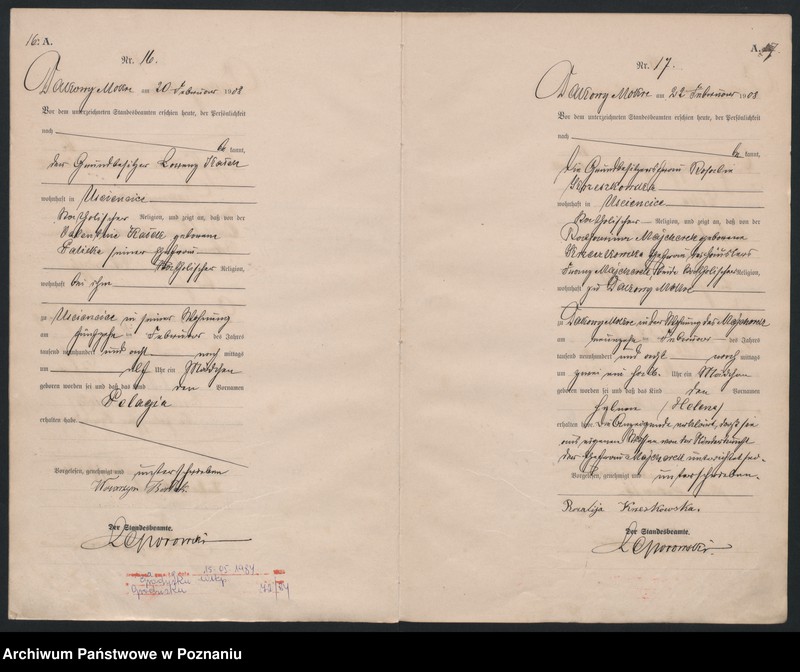 16. A.
Nr. 16.
Dalkony Mokre am 20 Februar 1908
Vor dem unterzeichneten Standesbeamten erschien heute, der Persönlichkeit
nach
be kannt,
der Grundbesitzer Lorenz
wohnhaft in Usciencice
katholischer Religion, und zeigt an, daß von der
geborene
seiner Ehefrau
katholischer Religion,
wohnhaft bei ihm
zu Usciencice in seiner Wohnung
am fünfzehn ten Februar des Jahres
tausend neunhundert und acht nach mittags
um elf Uhr ein Mädchen
geboren worden sei und daß das Kind den Vornamen
Pelagia
erhalten habe.
Vorgelesen, genehmigt und unterschrieben
Wawrzyn
Der Standesbeamte.
15.05.1984
72/84
A. 17
Nr. 17.
Dalkony Mokre am 22 Februar 1908.
Vor dem unterzeichneten Standesbeamten erschien heute, der Persönlichkeit
nach
be kannt,
die Grundbesitzersfrau Rosalie
wohnhaft in Usciencice
katholischer Religion, und zeigt an, daß von der
Majcharek geborene
Ehefrau des Häuslers
Franz Majcharek beide katholischer Religion,
wohnhaft zu Dalkony Mokre
zu Dalkony Mokre in der Wohnung des Majcharek
am neunzehn ten Februar des Jahres
tausend neunhundert und acht nach mittags
um zwei ein halb Uhr ein Mädchen
geboren worden sei und daß das Kind den Vornamen
(Helene)
erhalten habe. Die Anzeigende erklärt, daß sie
aus eigener Wissen von der Niederkunft
der Ehefrau Majcharek unterrichtet sei.
Vorgelesen, genehmigt und unterschrieben.
Der Standesbeamte.
Archiwum Państwowe w Poznaniu